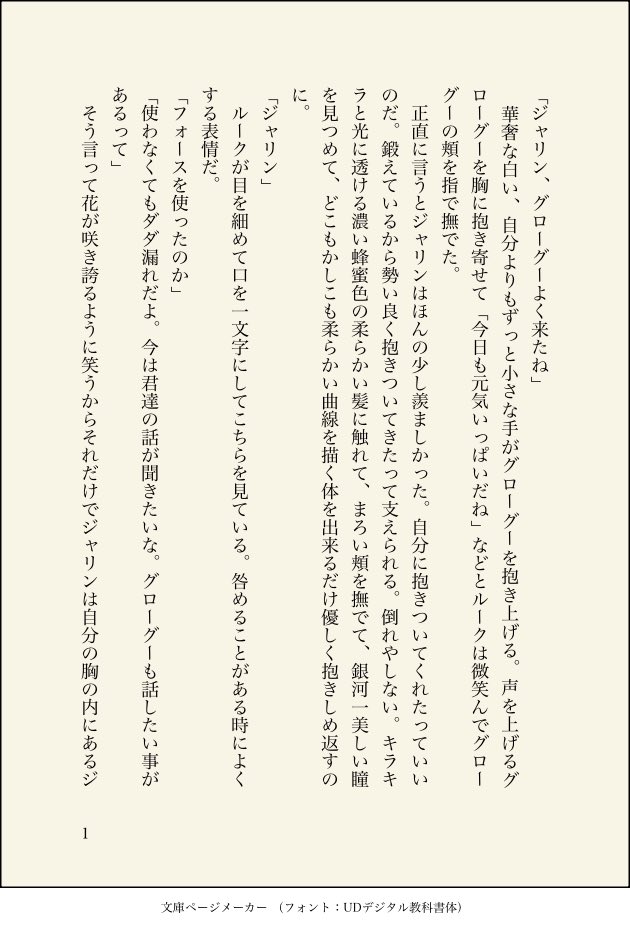 「ジャリン、グローグーよく来たね」
　華奢な白い、自分よりもずっと小さな手がグローグーを抱き上げる。声を上げるグ
ローグーを胸に抱き寄せて「今日も元気いっぱいだね」などとルークは微笑んでグロー
グーの頬を指で撫でた。
　正直に言うとジャリンはほんの少し羨ましかった。自分に抱きついてくれたっていい
のだ。鍛えているから勢い良く抱きついてきたって支えられる。倒れやしない。キラキ
ラと光に透ける濃い蜂蜜色の柔らかい髪に触れて、まろい頬を撫でて、銀河一美しい瞳
を見つめて、どこもかしこも柔らかい曲線を描く体を出来るだけ優しく抱きしめ返すの
に。
「ジャリン」
　ルークが目を細めて口を一文字にしてこちらを見ている。咎めることがある時によく
する表情だ。
「フォースを使ったのか」
「使わなくてもダダ漏れだよ。今は君達の話が聞きたいな。グローグーも話したい事が
あるって」
　そう言って花が咲き誇るように笑うからそれだけでジャリンは自分の胸の内にあるジ
1
文庫ページメーカー　（フォント：UDデジタル教科書体）